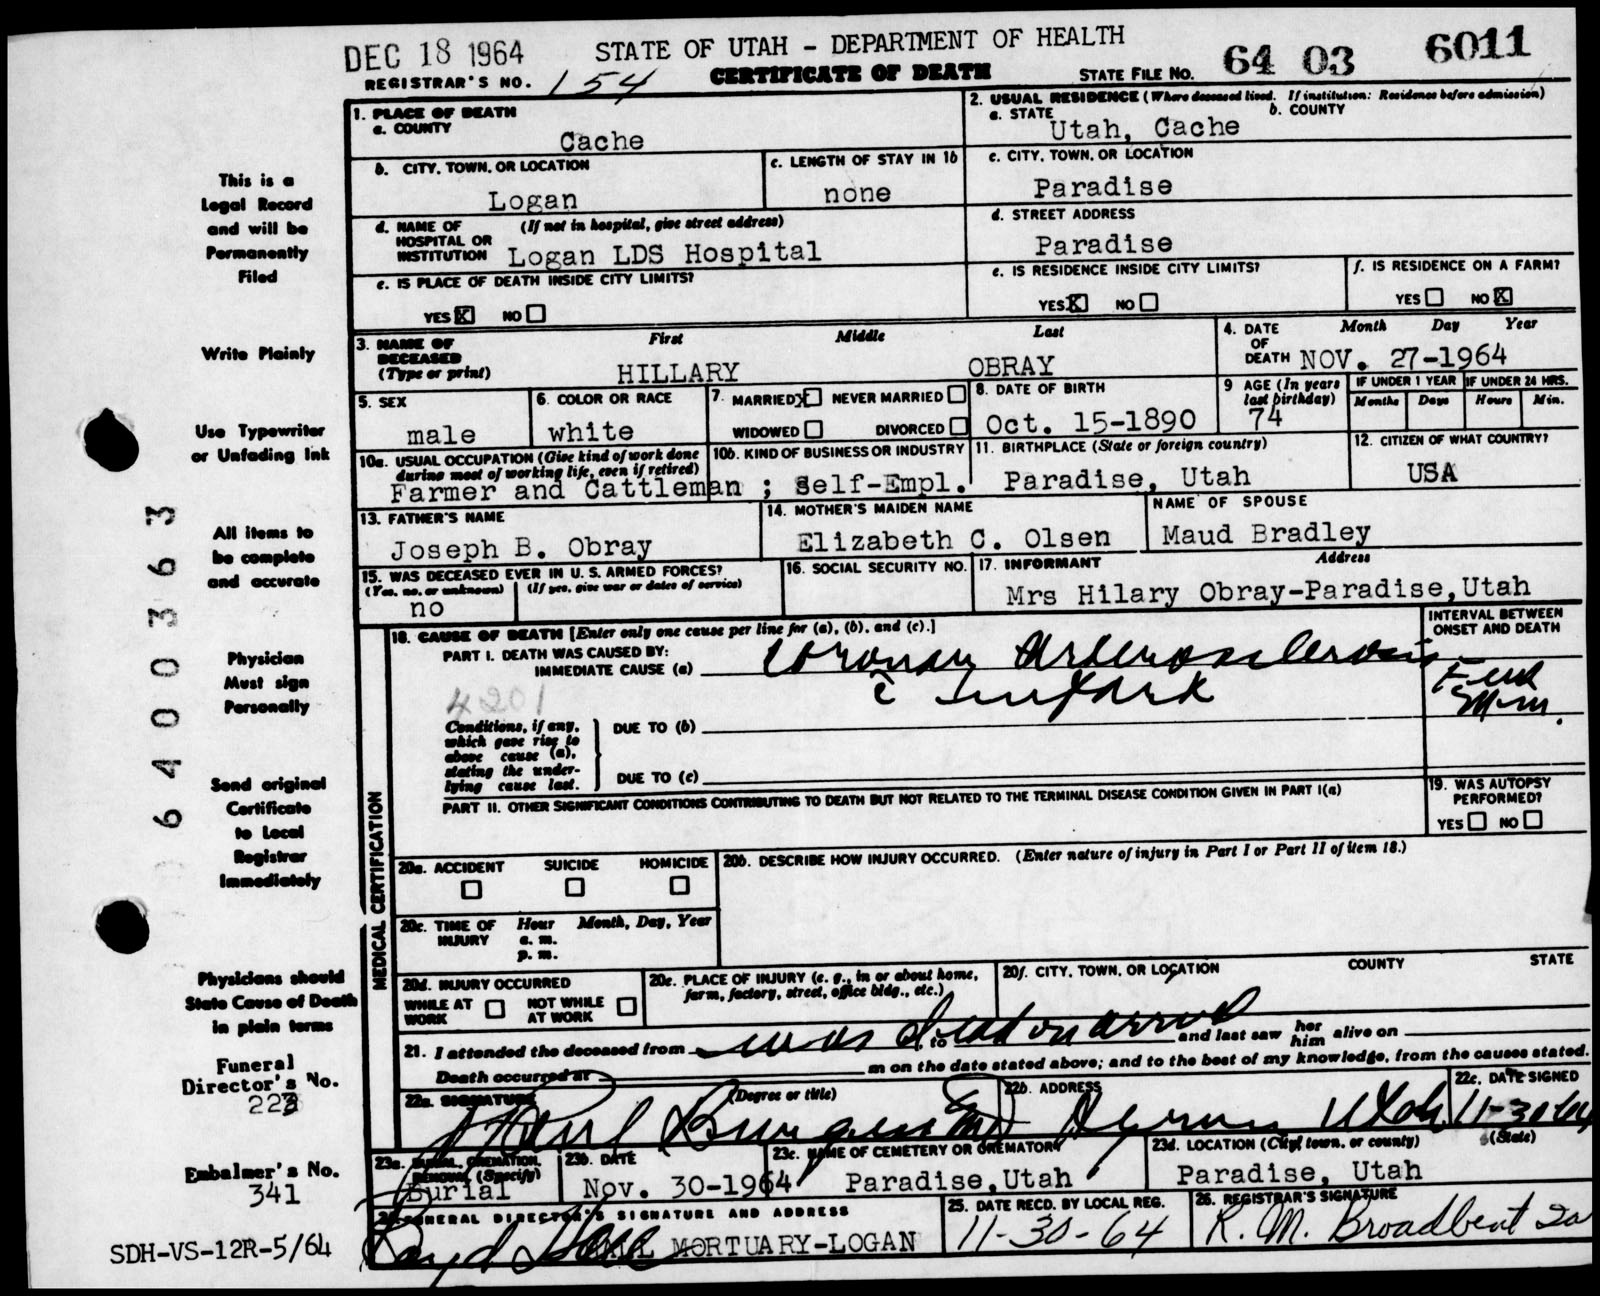 DEC 18 1964 STATE OF UTAH - DEPARTMENT OF HEALTH 64 03 6011
REGISTRAR'S NO. 154 CERTIFICATE OF DEATH STATE FILE NO.
1. PLACE OF DEATH
a. COUNTY
Cache
2. USUAL RESIDENCE (Where deceased lived. If institution: Residence before admission)
a. STATE b. COUNTY
Utah, Cache
b. CITY, TOWN, OR LOCATION
Logan
c. LENGTH OF STAY IN 1b
none
c. CITY, TOWN, OR LOCATION
Paradise
d. NAME OF (If not in hospital, give street address)
HOSPITAL OR
INSTITUTION Logan LDS Hospital
d. STREET ADDRESS
Paradise
e. IS PLACE OF DEATH INSIDE CITY LIMITS?
YES X NO
e. IS RESIDENCE INSIDE CITY LIMITS?
YES X NO
f. IS RESIDENCE ON A FARM?
YES NO X
3. NAME OF
DECEASED
(Type or print)
First Middle Last
HILLARY OBRAY
4. DATE Month Day Year
OF
DEATH NOV. 27-1964
5. SEX
male
6. COLOR OR RACE
white
7. MARRIED X NEVER MARRIED
WIDOWED DIVORCED
8. DATE OF BIRTH
Oct. 15-1890
9 AGE (In years
last birthday)
74
IF UNDER 1 YEAR IF UNDER 24 HRS.
Months Days Hours Min.
10a. USUAL OCCUPATION (Give kind of work done
during most of working life, even if retired)
Farmer and Cattleman ;
10b. KIND OF BUSINESS OR INDUSTRY
Self-Empl.
11. BIRTHPLACE (State or foreign country)
Paradise, Utah
12. CITIZEN OF WHAT COUNTRY?
USA
13. FATHER'S NAME
Joseph B. Obray
14. MOTHER'S MAIDEN NAME
Elizabeth C. Olsen
NAME OF SPOUSE
Maud Bradley
15. WAS DECEASED EVER IN U. S. ARMED FORCES?
(Yes, no, or unknown) (If yes, give war or dates of service)
no
16. SOCIAL SECURITY NO.
17. INFORMANT Address
Mrs Hilary Obray-Paradise,Utah
MEDICAL CERTIFICATION
18. CAUSE OF DEATH [Enter only one cause per line for (a), (b), and (c).]
INTERVAL BETWEEN
ONSET AND DEATH
PART I. DEATH WAS CAUSED BY:
IMMEDIATE CAUSE (a) Coronary Arteriosclerosis
c̄ Infark
Few
Min.
4201
Conditions, if any,
which gave rise to
above cause (a),
stating the under-
lying cause last.
DUE TO (b)
DUE TO (c)
PART II. OTHER SIGNIFICANT CONDITIONS CONTRIBUTING TO DEATH BUT NOT RELATED TO THE TERMINAL DISEASE CONDITION GIVEN IN PART I(a)
19. WAS AUTOPSY
PERFORMED?
YES NO
20a. ACCIDENT SUICIDE HOMICIDE
20b. DESCRIBE HOW INJURY OCCURRED. (Enter nature of injury in Part I or Part II of item 18.)
20c. TIME OF Hour Month, Day, Year
INJURY a. m.
p. m.
20d. INJURY OCCURRED
WHILE AT NOT WHILE
WORK AT WORK
20e. PLACE OF INJURY (e. g., in or about home,
farm, factory, street, office bldg., etc.)
20f. CITY, TOWN, OR LOCATION COUNTY STATE
21. I attended the deceased from was dead on arrival to and last saw her him alive on
Death occurred at m on the date stated above; and to the best of my knowledge, from the causes stated.
22a. SIGNATURE (Degree or title)
Paul Burgess MD
22b. ADDRESS
Hyrum Utah
22c. DATE SIGNED
11-30-64
23a. BURIAL, CREMATION,
REMOVAL (Specify)
Burial
23b. DATE
Nov. 30-1964
23c. NAME OF CEMETERY OR CREMATORY
Paradise,Utah
23d. LOCATION (City, town, or county) (State)
Paradise, Utah
24. FUNERAL DIRECTOR'S SIGNATURE AND ADDRESS
HALL MORTUARY-LOGAN
25. DATE RECD. BY LOCAL REG.
11-30-64
26. REGISTRAR'S SIGNATURE
R. M. Broadbent
This is a
Legal Record
and will be
Permanently
Filed
Write Plainly
Use Typewriter
or Unfading Ink
All items to
be complete
and accurate
Physician
Must sign
Personally
Send original
Certificate
to Local
Registrar
Immediately
Physicians should
State Cause of Death
in plain terms
Funeral
Director's No.
223
Embalmer's No.
341
SDH-VS-12R-5/64
6400363